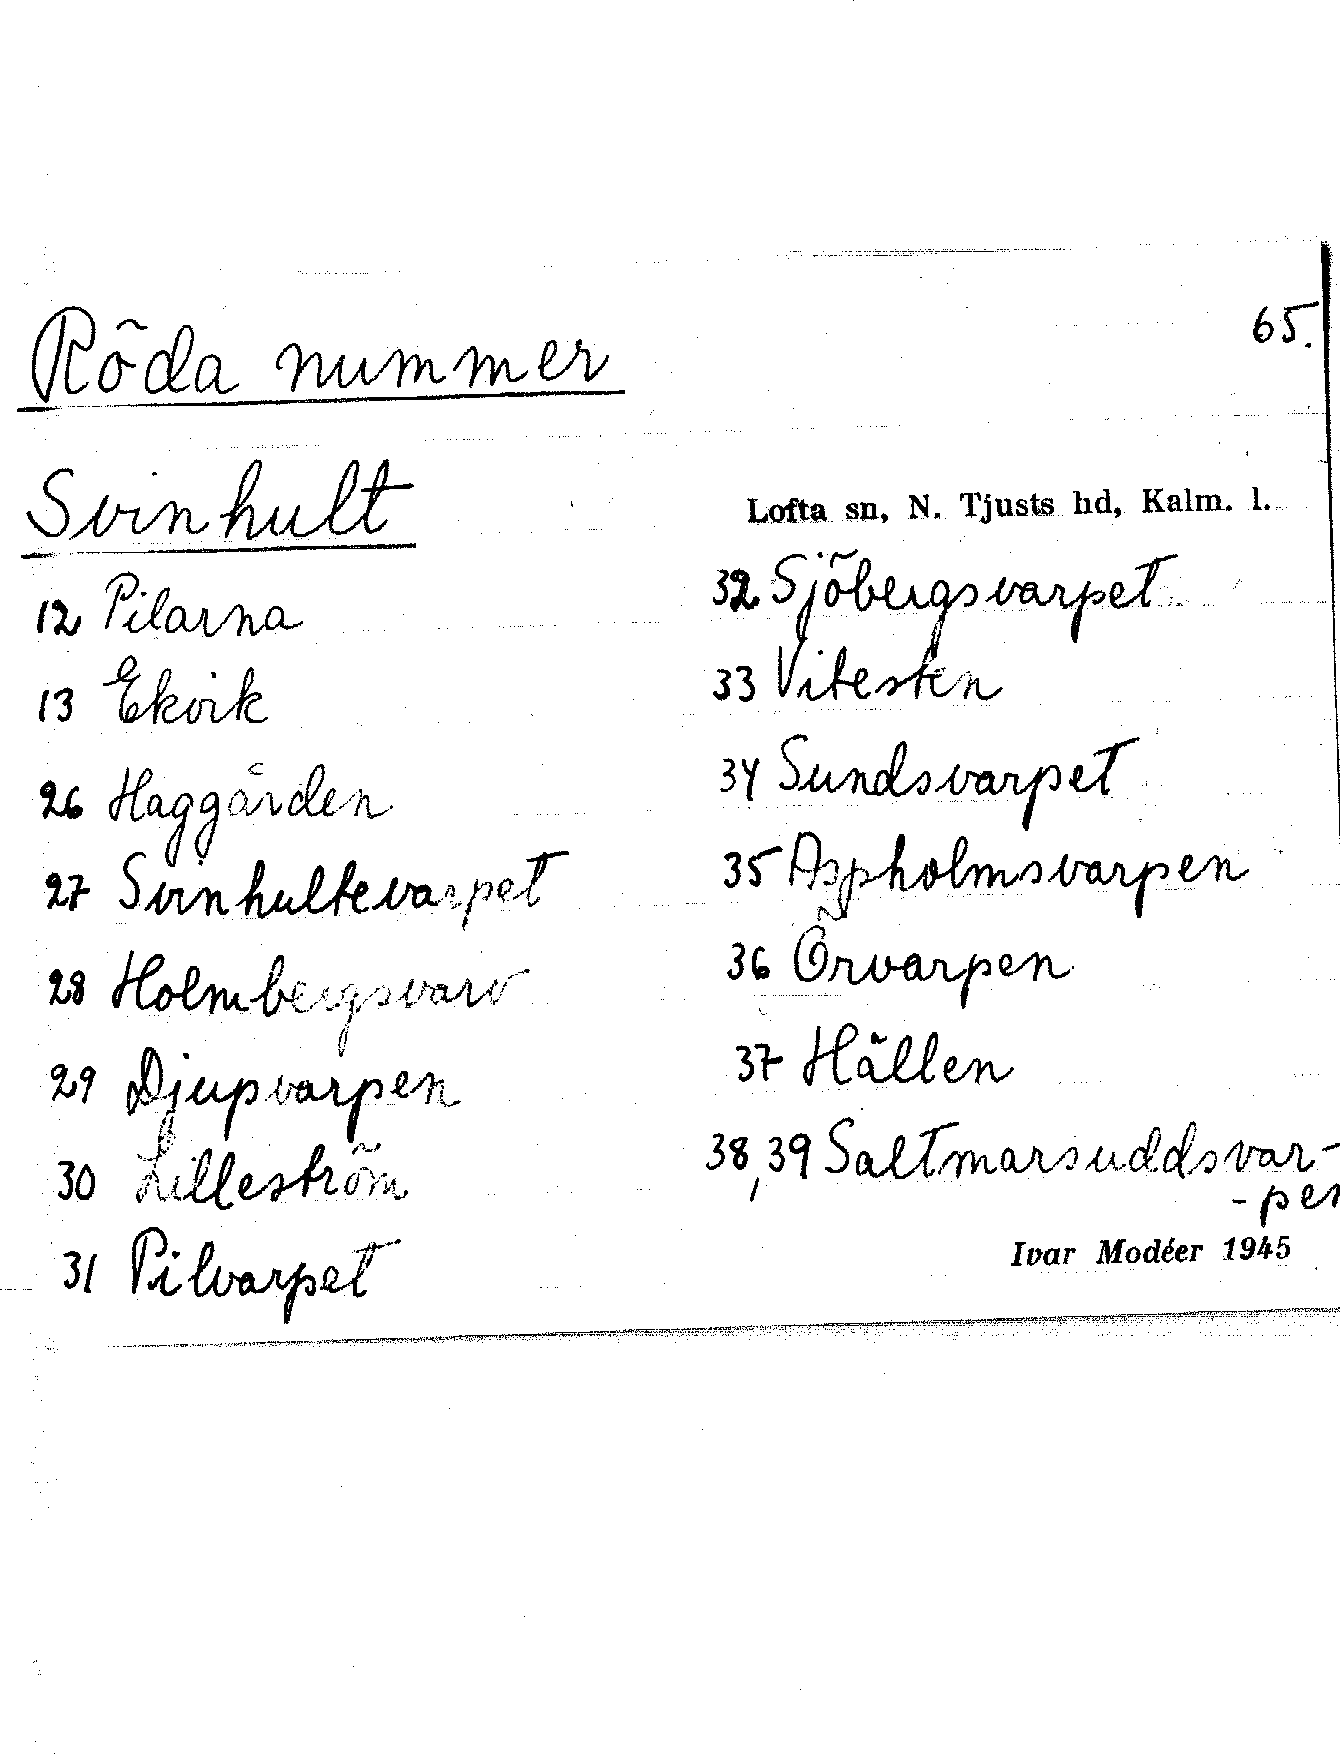 65.
Röda nummer
Svinhult
Lofta sn, N. Tjusts hd, Kalm. l.
12 Pilarna
13 Ekvik
26 Haggården
27 Svinhultevarpet
28 Holmbergsvarv
29 Djupvarpen
30 Lilleström
31 Pilvarpet
32 Sjöbergsvarpet
33 Vitesten
34 Sundsvarpet
35 Aspholmsvarpen
36 Örvarpen
37 Hällen
38, 39 Saltmarsuddsvar-
-pen
Ivar Modéer 1945